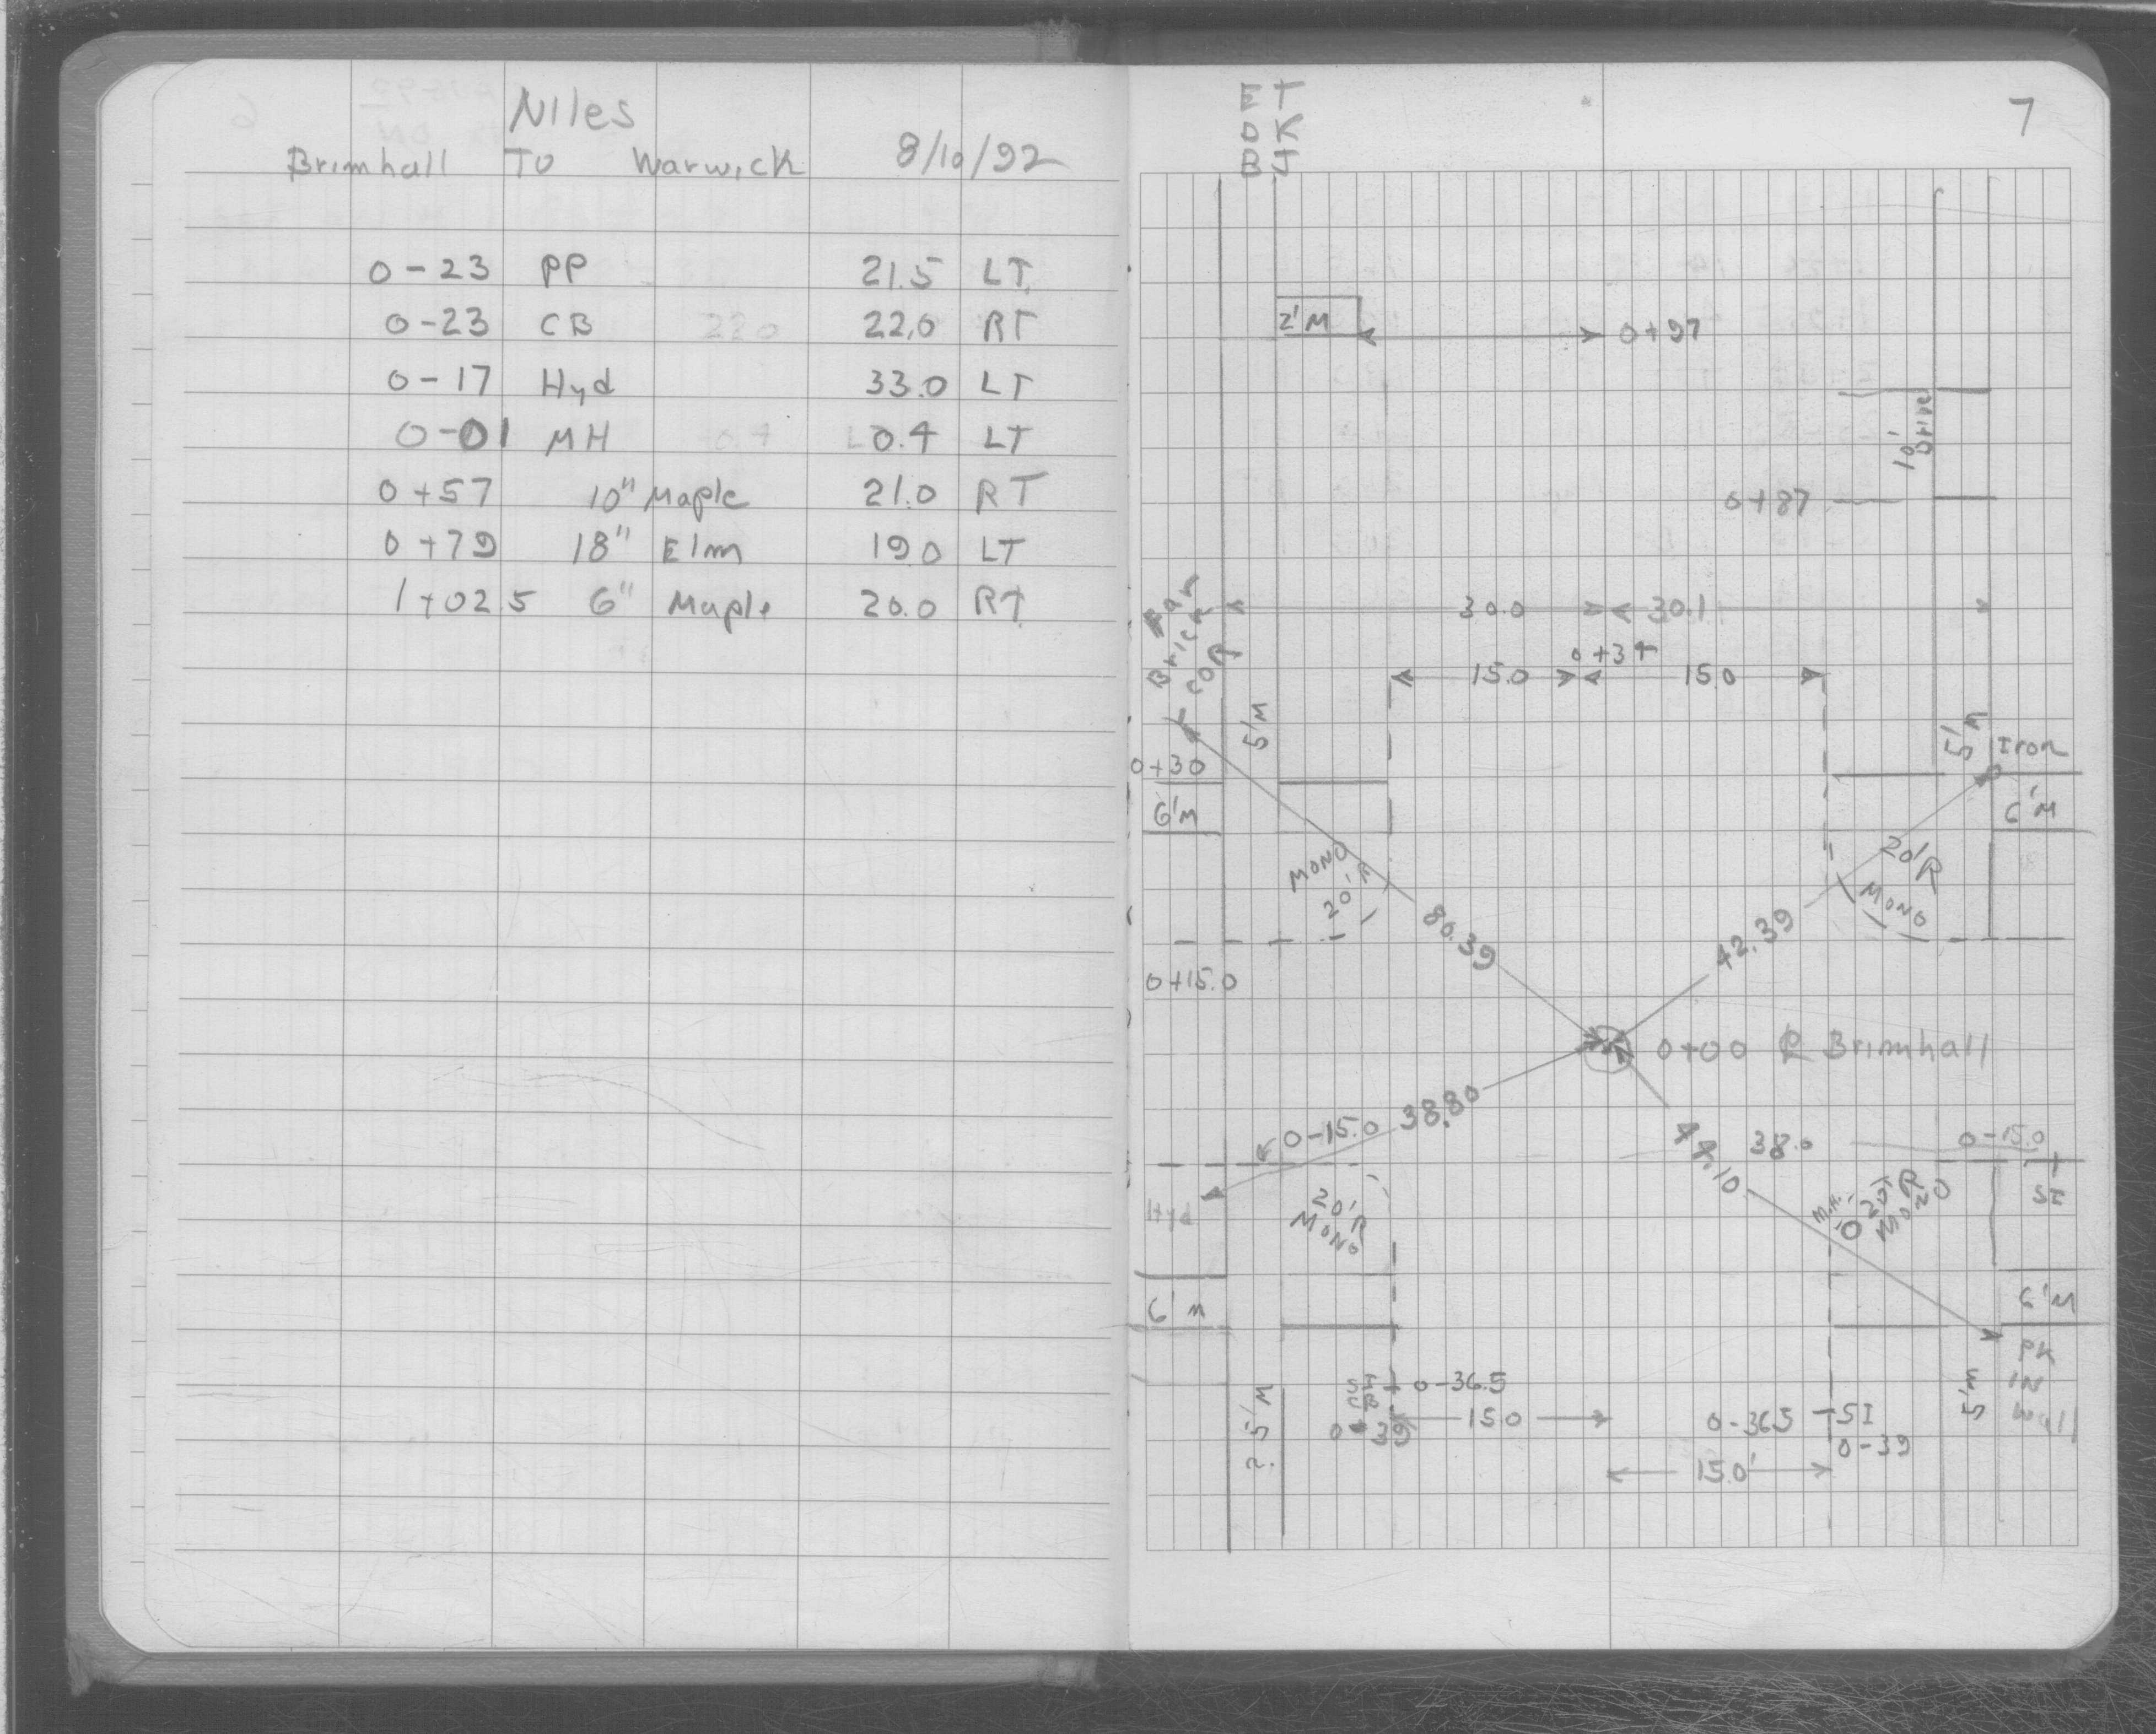 Niles
Brimhall To Warwick 8/10/92
0-23 PP 21.5 LT
0-23 CB 22.0 RT
0-17 Hyd 33.0 LT
0-01 MH 0.4 LT
0+57 10" Maple 21.0 RT
0+79 18" Elm 19.0 LT
1+02.5 6" Maple 20.0 RT
7
2'M
0+97
10'
Drive
0+87
30.0 30.1
Brick
COR
15.0 15.0
5'M
5'M
Iron
0+30
6'M
6'M
MONO
20'R
20'R
MONO
42.39
0+15.0
0+00 ℄ Brimhall
0-15.0 38.80
44.10
38.0
0-15.0
Hyd
20'R
MONO
M.H.
20'R
MONO
SI
6'M
6'M
PK
IN
Wall
5'M
0-36.5
15.0
0-36.5 SI
0-39
0-39
15.0'